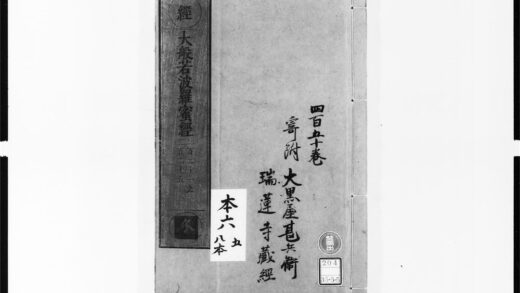 四百五十巻
寄附
大黒屋甚兵衛
瑞蓮寺藏經
經 大般若波羅蜜經
本六
五
八本
204